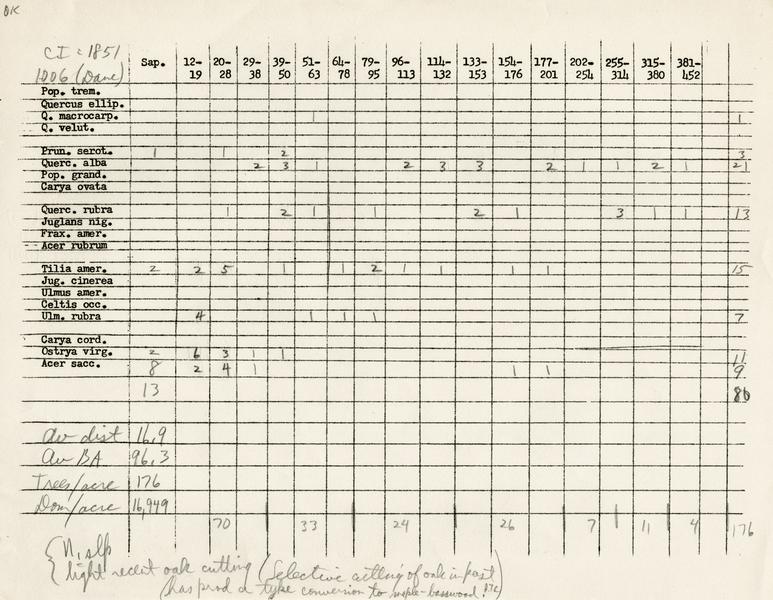 OK
CI = 1851
1006 (Dane) Sap. 12-19 20-28 29-38 39-50 51-63 64-78 79-95 96-113 114-132 133-153 154-176 177-201 202-254 255-314 315-380 381-452
Pop. trem.
Quercus ellip.
Q. macrocarp. 1 1
Q. velut.
Prun. serot. 1 1 2 3
Querc. alba 2 3 1 2 3 3 2 1 1 2 1 21
Pop. grand.
Carya ovata
Querc. rubra 1 2 1 1 2 1 3 1 1 13
Juglans nig.
Frax. amer.
Acer rubrum
Tilia amer. 2 2 5 1 1 2 1 1 1 1 15
Jug. cinerea
Ulmus amer.
Celtis occ.
Ulm. rubra 4 1 1 1 7
Carya cord.
Ostrya virg. 2 6 3 1 1 11
Acer sacc. 8 2 4 1 1 1 9
13 86
Av dist 16,9
Av BA 96,3
Trees/acre 176
Dom/acre 16,949
70 33 24 26 7 11 4 176
N, slp
light recent oak cutting (Selective cutting of oak in past
has prod a type conversion to maple-basswood.